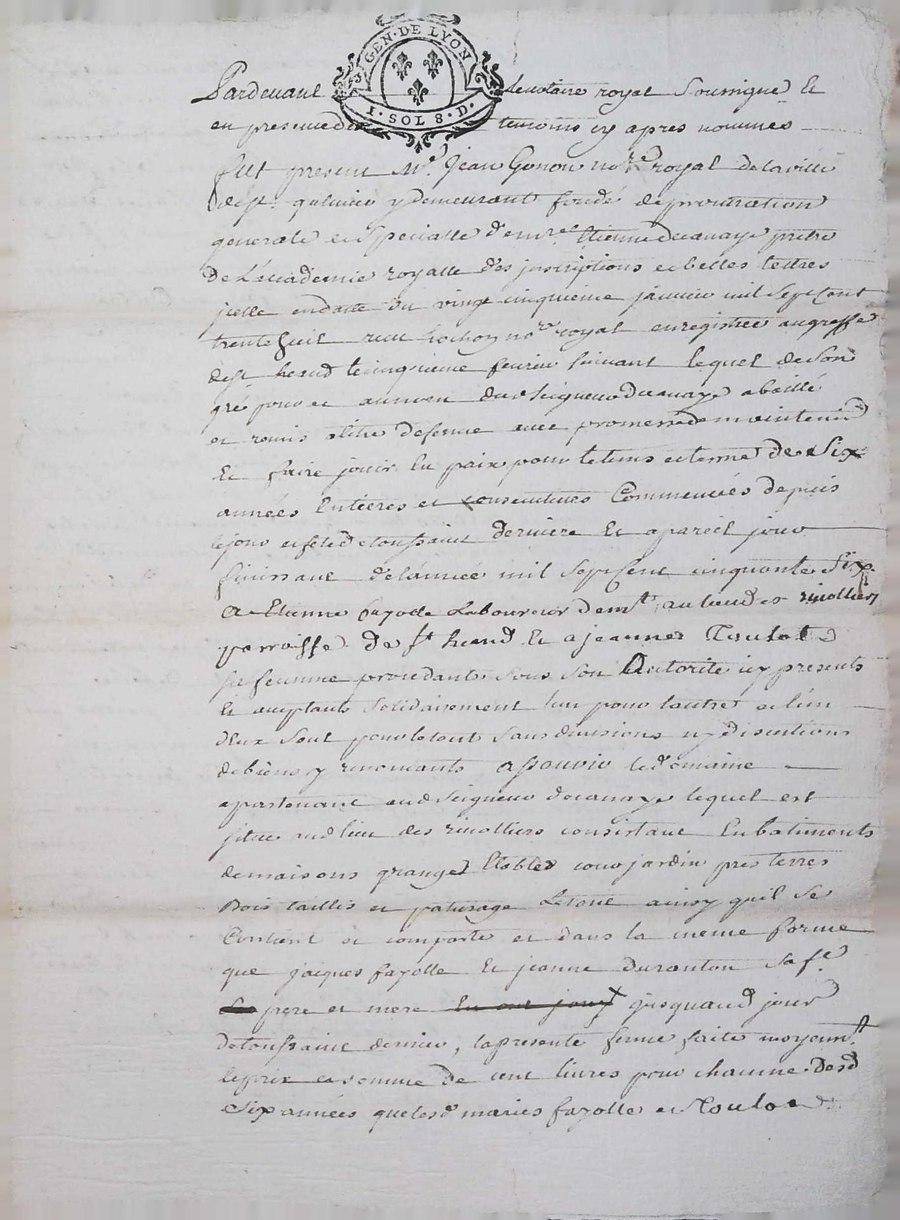 GEN · DE LYON
1 · SOL 8 · D ·
Pardevant le notaire royal soussigné et
en presence des temoins cy apres nommés
fut present Me. Jean Gonon nore royal de la ville
de st. galmier y demeurant fondé de procuration
generale et specialle d'emre Etienne de canaye pretre
de L'accademie royalle des jnscriptions et belles lettres
jcelle en datte du vingt cinquieme janvier mil sept cent
trente huit reçue nore royal enregistrée au greffe
de st. heand le cinquieme fevrier suivant lequel de son
gré pour et au nom dud. seigneur de canaye a baillé
et remis a titre de ferme avec promesse de maintenir
et faire jouir en paix pour le tems et terme de six
années entieres et consecutives commencées depuis
le jour et fete de toussaint derniere et a pareil jour
finissant de l'année mil sept cent cinquante six
a Etienne fayolle Laboureur demt. au lieu des rivolliers
parroisse de st. heand et a jeanne Toulot
sa femme procedants sous son autorité icy presents
et acceptants solidairement l'un pour l'autre et l'un
d'eux seul pour le tout sans divisions ny discutions
de biens y renoncants a sçavoir le domaine
apartenant aud seigneur de canaye lequel est
situé aud lieu des rivolliers consistant en batiments
de maisons granges Etables cour jardin pres terres
Bois taillis et paturage Le tout ainsy qu'il se
Contient et comporte et dans la meme forme
que jacques fayolle et jeanne duranton sa fe.
pere et mere en ont jouy jusqu'aud jour
de toussaint dernier, la presente ferme faite moyennt.
le prix et somme de cent livres pour chacune desd
six années que lesd mariés fayolle et Toulot